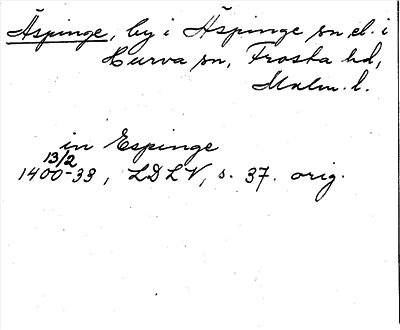 Äspinge, by i Äspinge sn, el. i
Hurva sn, Frosta hd,
Malm. l.
in Espinge
13/2
1400-33, LDLV, s. 37. orig.